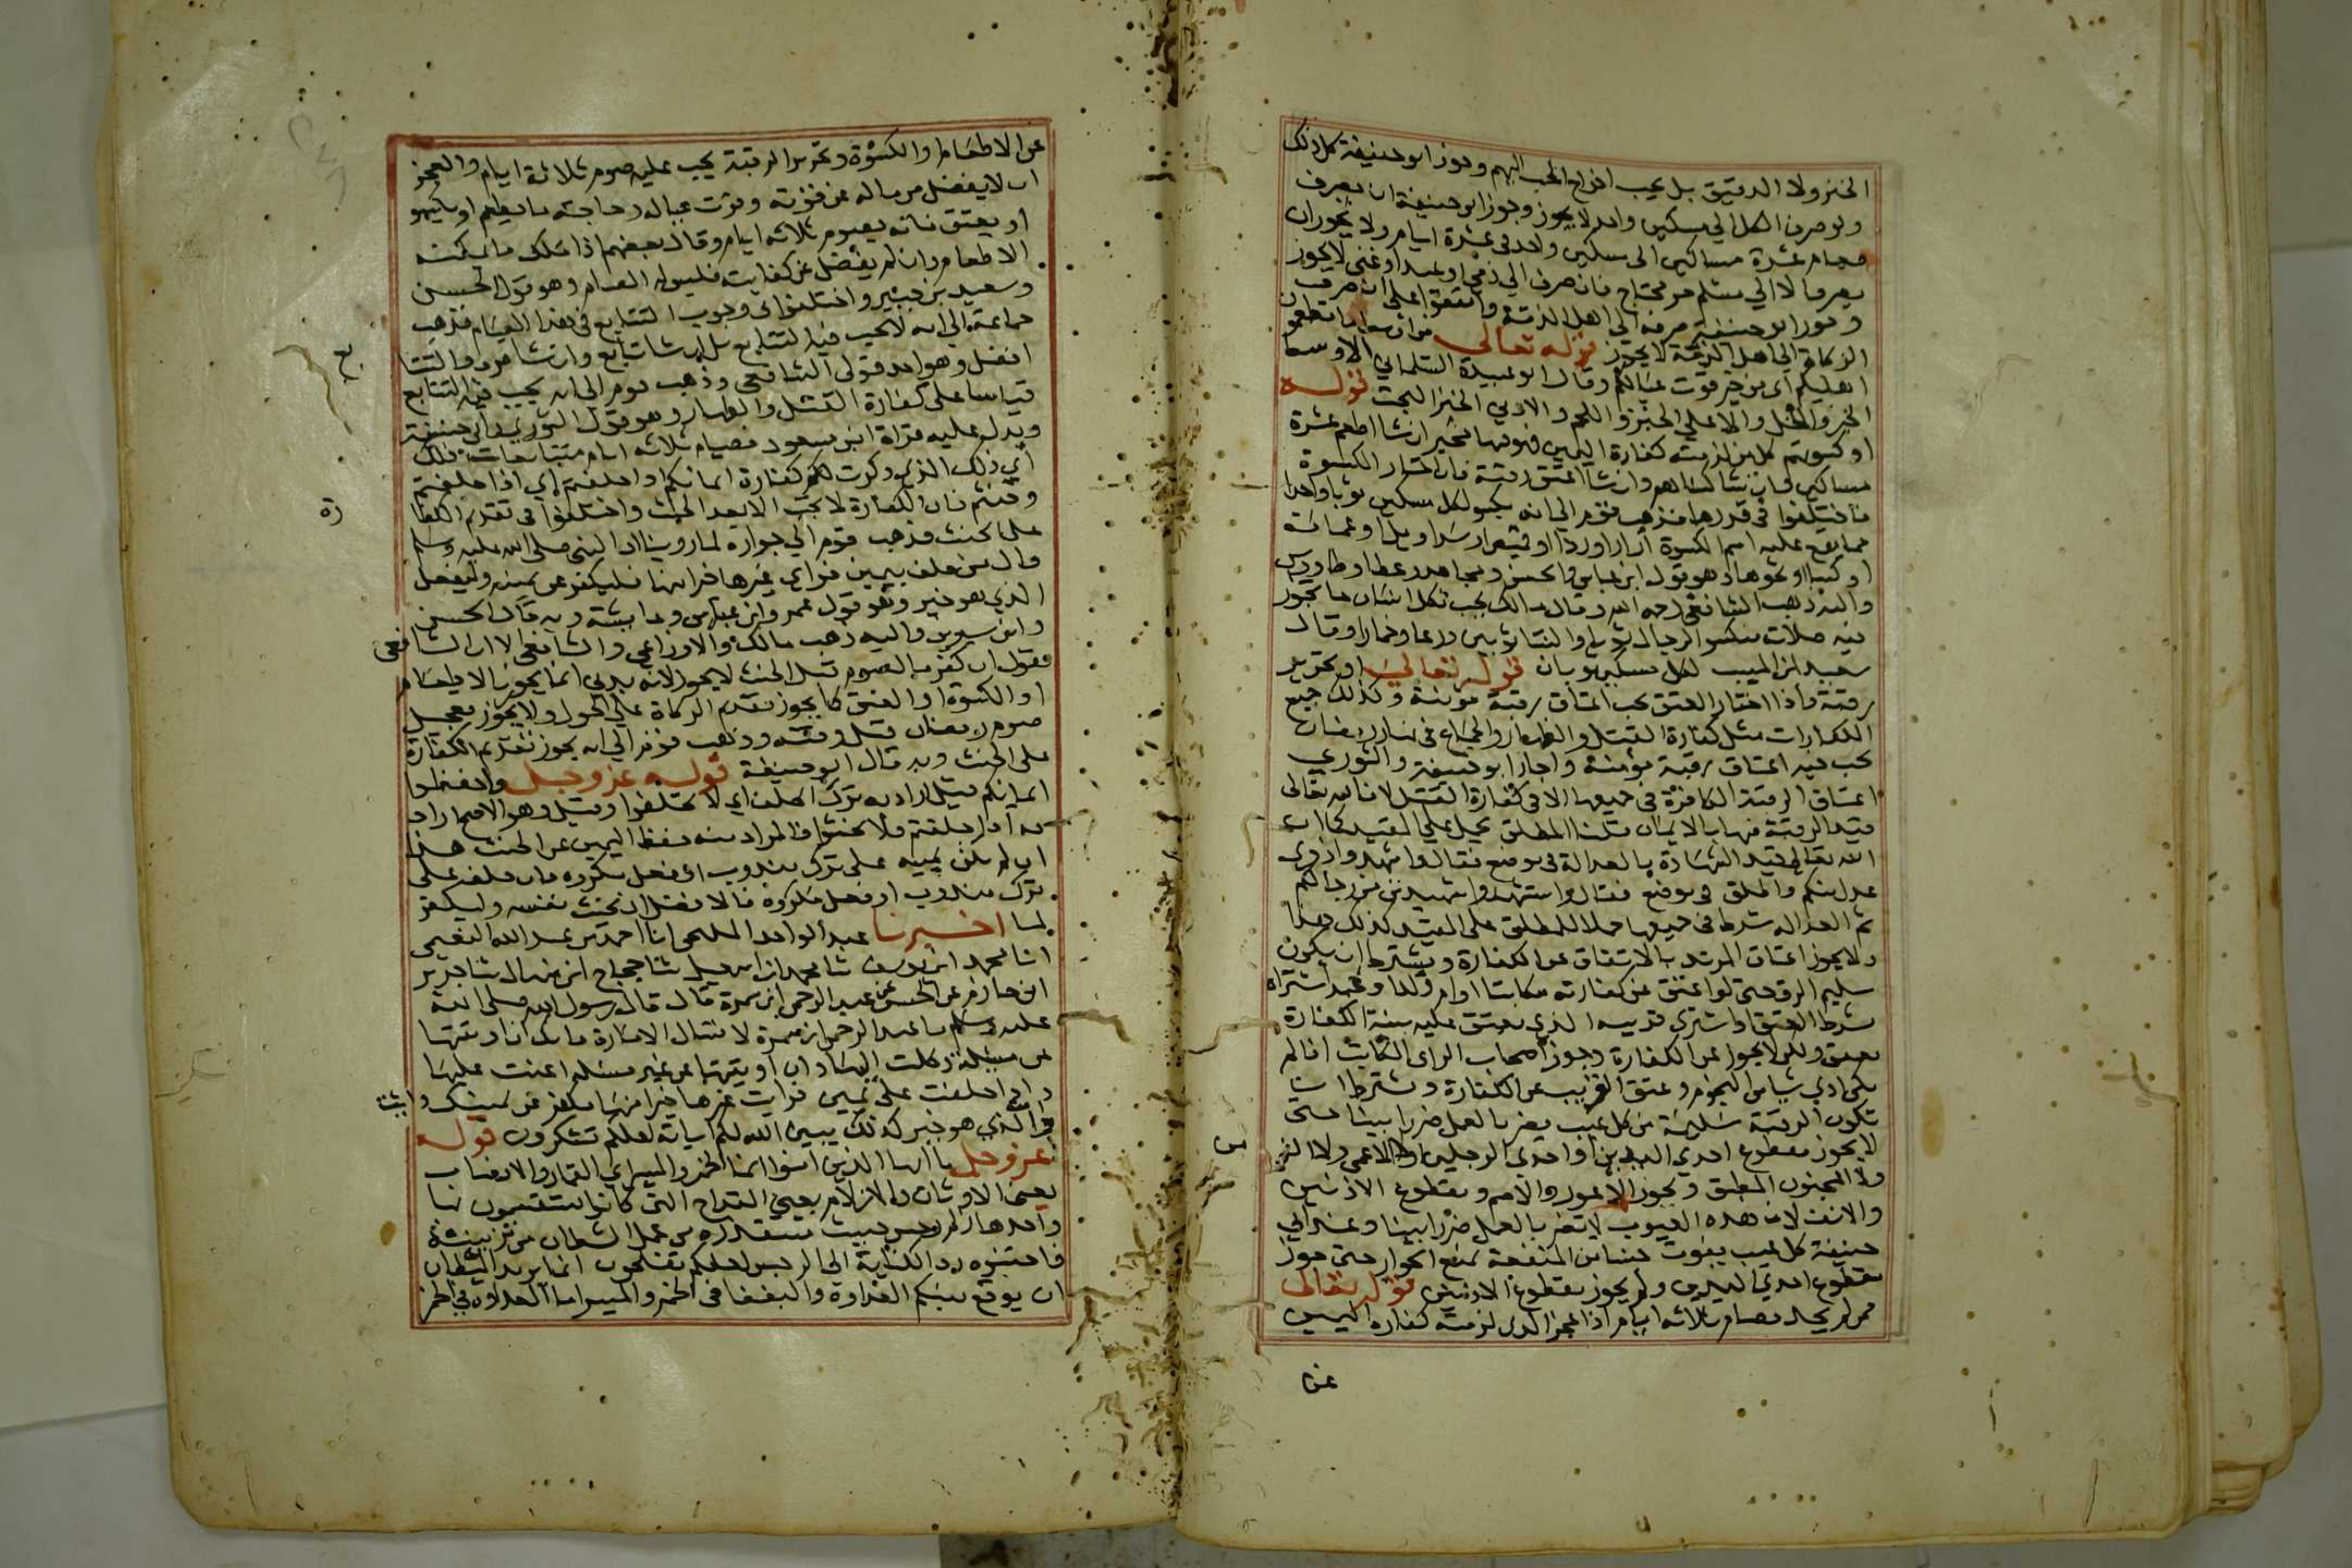 الخبز ولا الدقيق بل يجب اخراج الحب اليهم وجوز ابو حنيفة كل ذلك
ولو صرف الكل الي مسكين واحد لا يجوز وجوز ابو حنيفة ان يصرف
طعام عشرة مساكين الى مسكين واحد في عشرة ايام ولا يجوز ان
يصرف الا الي مسلم حر محتاج فان صرف الي ذمي او عبد او غني لا يجوز
وجوز ابو حنيفة صرفه الى اهل الذمة واتفقوا على ان صرف
الزكاة الى اهل الذمة لا يجوز قوله تعالى من اوسط ما تطعمون
اهليكم اي من خير قوت عيالكم وقال ابو عبيدة السلماني الاوسط
الخبز والخل والاعلى الخبز واللحم والادنى الخبز البحت قوله
او كسوتهم كل من لزمته كفارة اليمين فهو فيها مخير ان شا اطعم عشرة
مساكين وان شا كساهم وان شا اعتق رقبة فان اختار الكسوة
فاختلفوا في قدرها فذهب قوم الى انه يكسو لكل مسكين ثوبا واحدا
مما يقع عليه اسم الكسوة ازار او رداء او قميص او سراويل او عمامة
او كسا او نحوها وهو قول ابن عباس والحسن ومجاهد وعطا وطاووس
واليه ذهب الشافعي رحمه الله وقال مالك يجب لكل انسان ما تجوز
فيه صلاته فيكسو الرجال ثوبا والنسا ثوبين درعا وخمارا وقال
سعيد ابن المسيب لكل مسكين ثوبان قوله تعالى او تحرير
رقبة واذا اختار العتق يجب اعتاق رقبة مومنة وكذلك جميع
الكفارات مثل كفارة القتل والظهار والجماع في نهار رمضان
يجب فيه اعتاق رقبة مؤمنة واجاز ابو حنيفة والثوري
اعتاق الرقبة الكافرة في جميعها الا في كفارة القتل لان الله تعالى
قيد الرقبة فيها بالايمان قلنا المطلق يحمل على المقيد كما ان
الله تعالى قيد الشهادة بالعدالة في موضع فقال واشهدوا ذوي
عدل منكم واطلق في موضع فقال واستشهدوا شهيدين من رجالكم
ثم العدالة شرط في جميعها حملا للمطلق على المقيد كذلك هذا
ولا يجوز اعتاق المرتد بالاتفاق عن الكفارة ويشترط ان يكون
سليم الرق حتى لو اعتق عن كفارته مكاتبا او ام ولد او عبد اشتراه
بشرط العتق او اشترى قريبه الذي يعتق عليه بنية الكفارة
يعتق ولكن لا يجوز عن الكفارة وجوز اصحاب الراى المكاتب اذا لم
يكن ادى شيا من النجوم وعتق القريب عن الكفارة ويشترط ان
تكون الرقبة سليمة من كل عيب يضر بالعمل ضررا بينا حتى
لا يجوز مقطوع احدي اليدين او احدي الرجلين ولا الاعمى ولا الزمن
ولا المجنون المطبق ويجوز الاعور والاصم ومقطوع الاذنين
والانف لان هذه العيوب لا تضر بالعمل ضررا بينا وعند ابي
حنيفة كل عيب يفوت جنسا من المنفعة يمنع الجواز حتى جوز
مقطوع احدي اليدين ولم يجوز مقطوع الاذنين قوله تعالى
فمن لم يجد فصيام ثلاثة ايام اذا عجز الذي لزمته كفارة اليمين
عن
عن الاطعام او الكسوة وتحرير الرقبة يجب عليه صوم ثلاثة ايام والعجز
ان لا يفضل من ماله عن قوته وقوت عياله وحاجته ما يطعم او يكسو
او يعتق فانه يصوم ثلاثة ايام وقال بعضهم اذا ملك ما يمكنه
الاطعام وان لم يفضل عن كفايته فليس له الصيام وهو قول الحسن
وسعيد بن جبير واختلفوا في وجوب التتابع في هذا الصيام فذهب
جماعة الى انه لا يجب فيه التتابع بل ان شا تابع وان شا فرق والتتابع
افضل وهو احد قولي الشافعي وذهب قوم الى انه يجب فيه التتابع
قياسا على كفارة القتل والظهار وهو قول الثوري وابي حنيفة
ويدل عليه قراة ابن مسعود فصيام ثلاثة ايام متتابعات ذلك
اي ذلك الذي ذكرت لكم كفارة ايمانكم اذا حلفتم اي اذا حلفتم
وحنثتم فان الكفارة لا تجب الا بعد الحنث واختلفوا في تقديم الكفارة
على الحنث فذهب قوم الى جوازه لما روينا ان النبي صلى الله عليه وسلم
قال من حلف بيمين فراي غيرها خيرا منها فليكفر عن يمينه وليفعل
الذي هو خير وهو قول عمر وابن عباس وعايشة وبه قال الحسن
وابن سيرين واليه ذهب مالك والاوزاعي والشافعي الا ان الشافعي
يقول ان كفر بالصوم قبل الحنث لا يجوز لانه بدني انما يجوز الاطعام
او الكسوة او العتق كما يجوز تقديم الزكاة على الحول ولا يجوز تعجيل
صوم رمضان قبل وقته وذهب قوم الى انه لا يجوز تقديم الكفارة
على الحنث وبه قال ابو حنيفة قوله عز وجل واحفظوا
ايمانكم قيل اراد به ترك الحلف اي لا تحلفوا وقيل وهو الاصح اراد
به اذا حلفتم فلا تحنثوا فالمراد منه حفظ اليمين عن الحنث هذا
ان لم يكن يمينه على ترك مندوب او فعل مكروه فان حلف على
ترك مندوب او فعل مكروه فالافضل ان يحنث نفسه وليكفر
لما اخبرنا عبد الواحد المليحي انا احمد بن عبد الله النعيمي
انا محمد ابن يوسف ثنا محمد ابن اسمعيل ثنا حجاج ابن منهال ثنا جرير
ابن حازم عن الحسن عن عبد الرحمن ابن سمرة قال قال رسول الله صلى الله
عليه وسلم يا عبد الرحمن ابن سمرة لا تسال الامارة فانك ان اوتيتها
عن مسئلة وكلت اليها وان اوتيتها عن غير مسئلة اعنت عليها
واذا حلفت على يمين فرايت غيرها خيرا منها فكفر عن يمينك وايت
الذي هو خير كذلك يبين الله لكم اياته لعلكم تشكرون قوله
عز وجل يا ايها الذين امنوا انما الخمر والميسر اي القمار والانصاب
يعني الاوثان والازلام يعني القداح التي كانوا يستقسمون بها
واحدها زلم رجس خبيث مستقذر من عمل الشيطان من تزيينه
فاجتنبوه رد الكناية الى الرجس لعلكم تفلحون انما يريد الشيطان
ان يوقع بينكم العداوة والبغضا في الخمر والميسر اما العداوة في الخمر